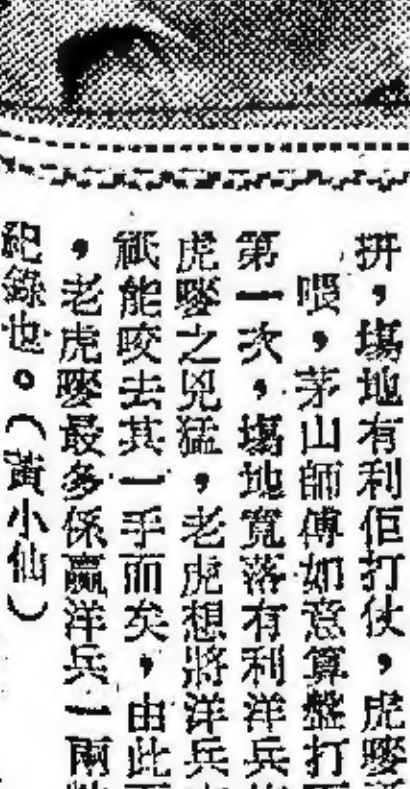 拼，塲地有利佢打仗，虎嘜
喂，茅山師傅如意算盤打
第一次，塲地寬落有利洋兵
虎嘜之兇猛，老虎想將洋兵
祇能咬去其一手而矣，由此
，老虎嘜最多係贏洋兵一兩
紀錄也。（黃小仙）